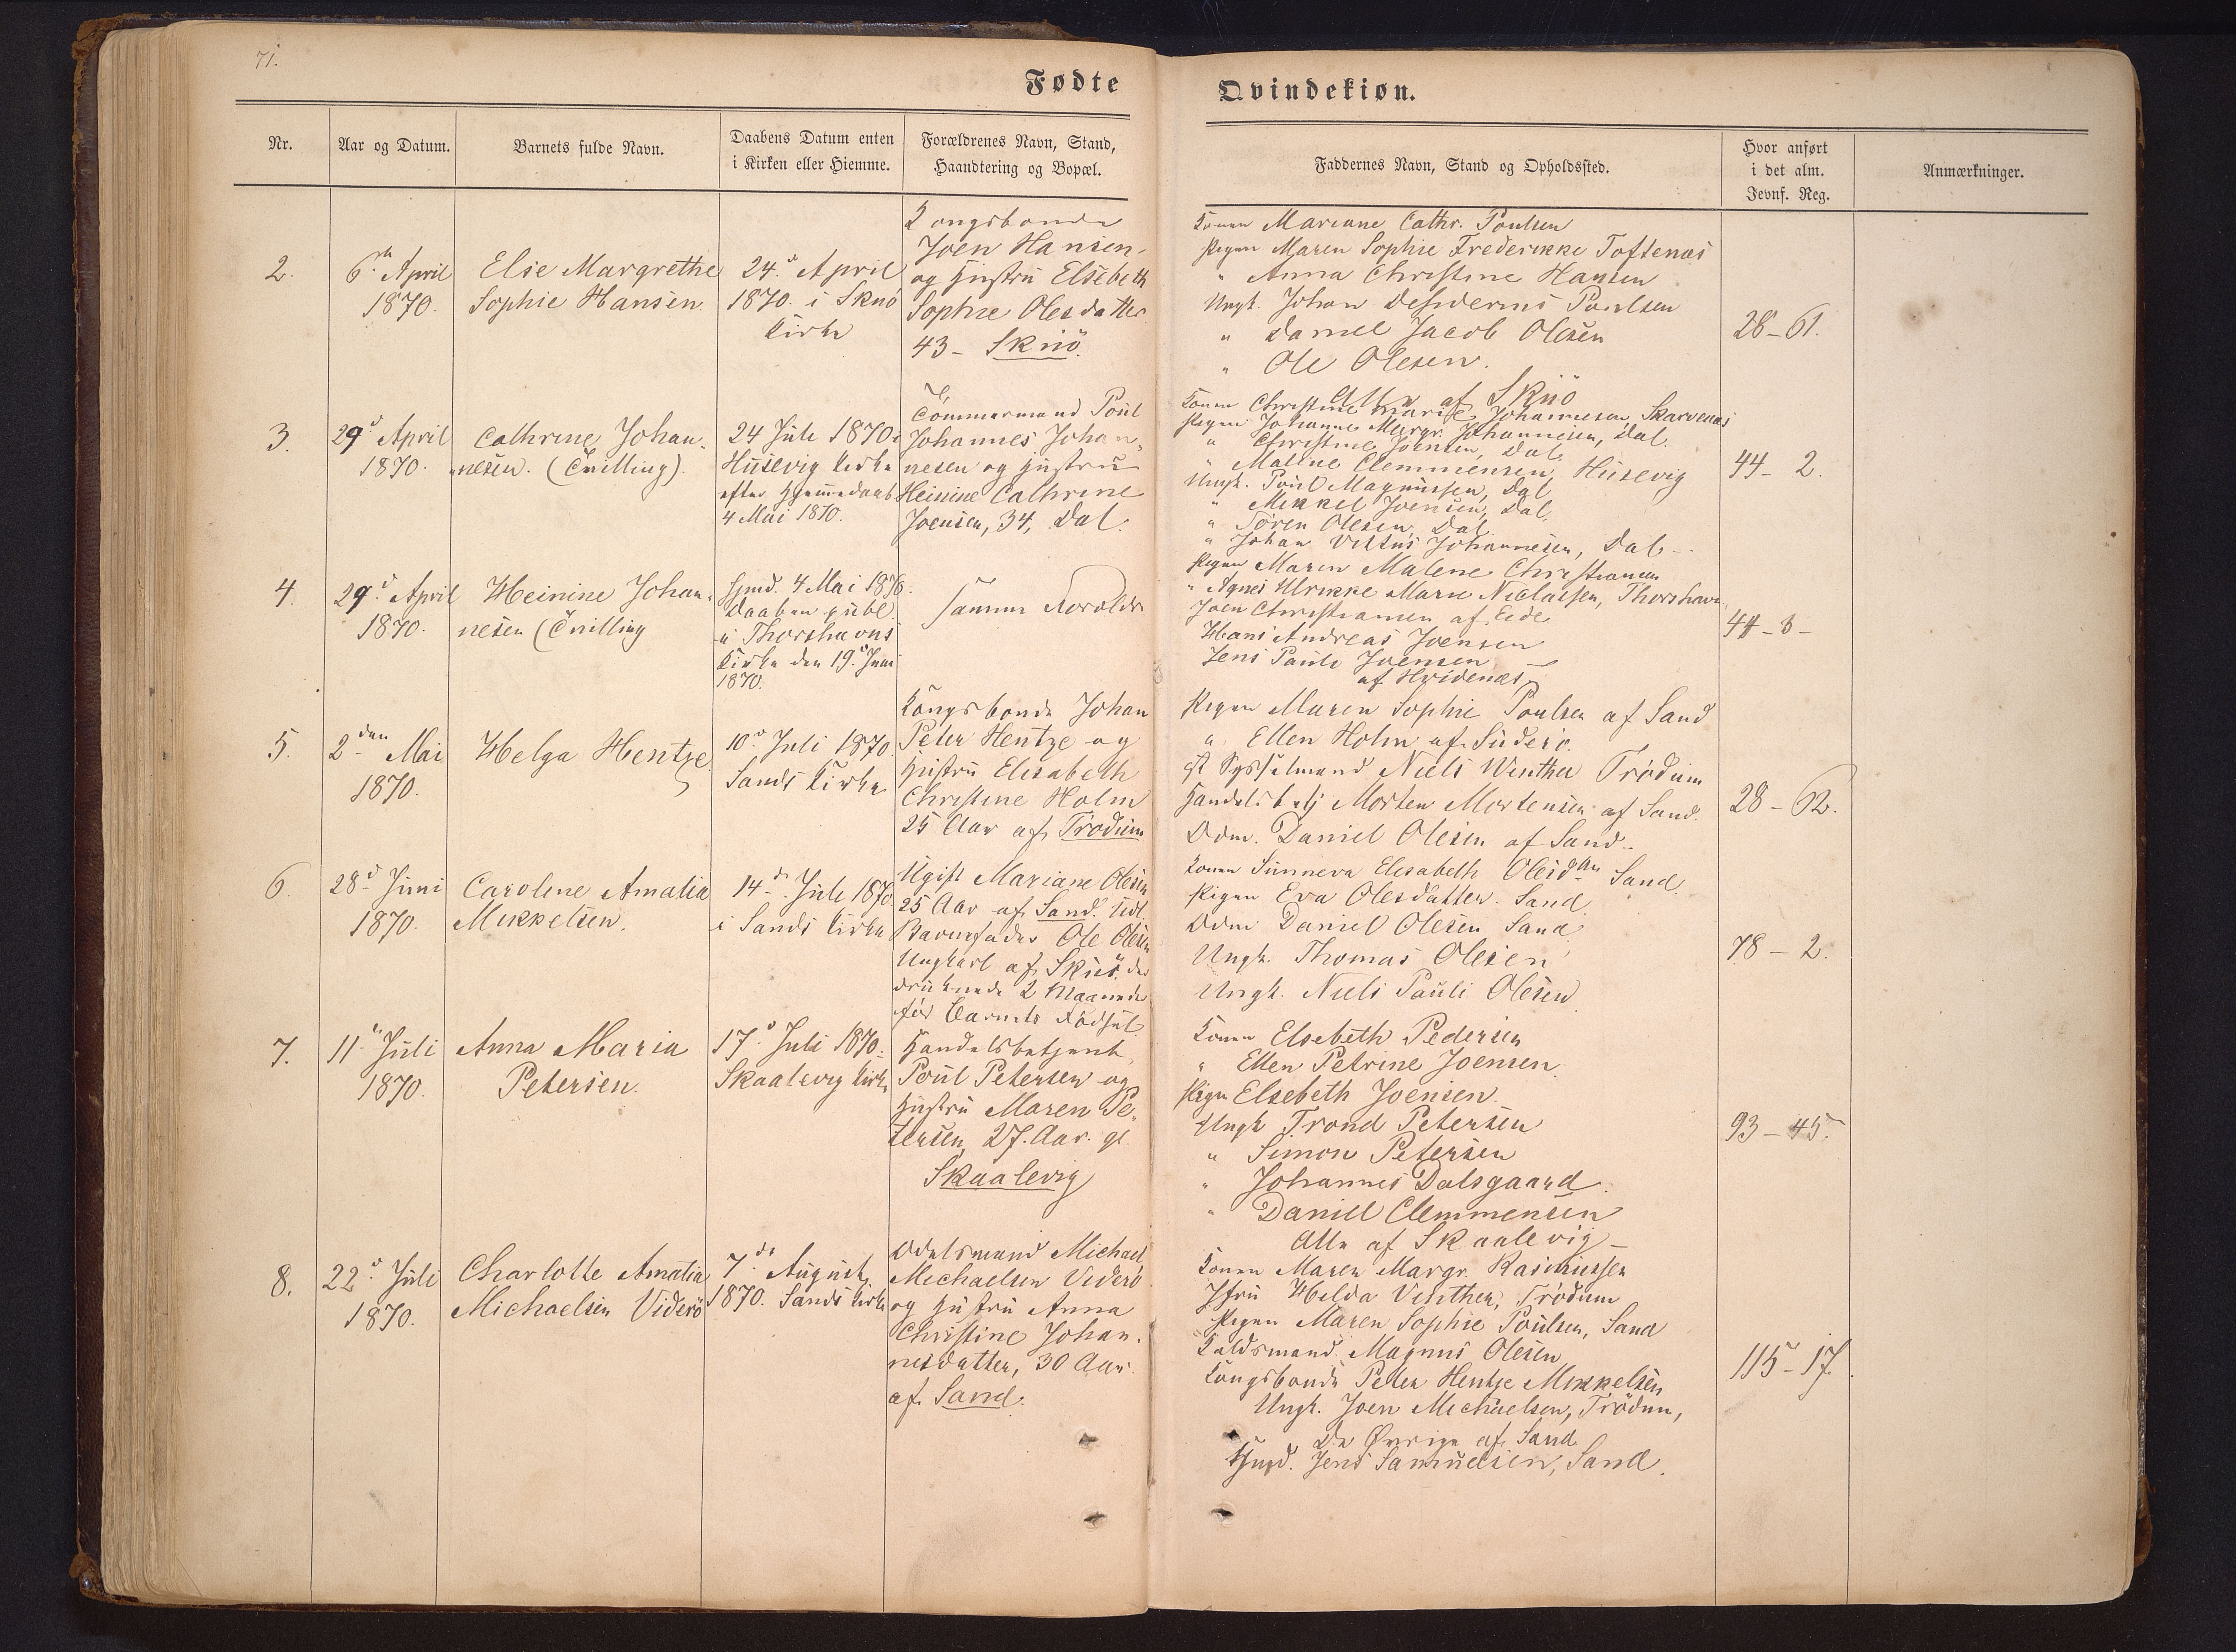 71.
Fødte
Qvindekiøn.
Nr.
Aar og Datum.
Barnets fulde Navn.
Daabens Datum enten
i Kirken eller Hiemme.
Forældrenes Navn, Stand,
Haandtering og Bopæl.
Faddernes Navn, Stand og Opholdssted.
Hvor anført
i det alm.
Jevnf. Reg.
Anmærkninger.
2.
6te April
1870.
Else Margrethe
Sophie Hansen.
24.d April
1870. i Skuö
Kirke
Kongsbonde
Joen Hansen
og Hustru Elsebeth
Sophie Olesdatter
43 - Skuö.
Konen Mariane Cathr. Poulsen
Pigen Maren Sophie Frederikke Toftenæs
" Anna Christine Hansen
Ungk. Johan Desiderius Poulsen
" Daniel Jacob Olesen
" Ole Olesen.
Alle af Skuö
28-61.
3.
29d April
1870.
Cathrine Johan-
nesen. (Tvilling).
24 Juli 1870 i
Husevig Kirke
efter Hjemmedaab
4 Mai 1870.
Tömmermand Poul
Johannes Johan-
nesen og Hustru
Heinine Cathrine
Joensen, 34, Dal.
Konen Christine Marie Johannesen, Skarvenæs
Pigen Johanne Margr. Johannesen, Dal.
" Christine Joensen, Dal.
" Maline Clemmensen, Husevig
Ungk. Poul Magnussen, Dal
" Mikkel Joensen, Dal.
" Sören Olesen, Dal
" Johan Vilius Johannesen, Dal -
44- 2.
4.
29.d April
1870.
Heinine Johan-
nesen (Tvilling
Hjmd. 4 Mai 1870.
Daaben publ.
i Thorshavns
Kirke den 19.d Juni
1870.
Samme Forældre
Pigen Maren Malene Christiansen
" Agnes Ulrikke Marie Niclasen, Thorshavn
Joen Christiansen af Eide
Hans Andreas Joensen
Jens Pauli Joensen
af Hvidenæs
44-3-
5.
2den Mai
1870.
Helga Hentze
10.d Juli 1870
Sands Kirke
Kongsbonde Johan
Peter Hentze og
Hustru Elisabeth
Christine Holm
25 Aar af Trödum
Pigen Maren Sophie Poulsen af Sand
" Ellen Holm af Suderö.
Sysselmand Niels Winther Trödum
Handelsbetj Morten Mortensen af Sand.
Odm. Daniel Olesen af Sand -
28-62.
6.
28d Juni
1870.
Caroline Amalia
Mikkelsen.
14.d Juli 1870
i Sands Kirke
Ugift Mariane Olesen
25 Aar af Sand. Udl.
Barnefader Ole Olesen
Ungkarl af Skuö. der
druknede 2 Maaneder
för Barnets Födsel
Konen Sunneva Elisabeth Olesdtr Sand.
Pigen Eva Olesdatter. Sand
Odm Daniel Olesen Sand
Ungk. Thomas Olesen
Ungk. Niels Pauli Olesen
78-2.
7.
11. Juli
1870.
Anna Maria
Petersen.
17.d Juli 1870.
Skaalevig Kirke
Handelsbetjent
Poul Petersen og
Hustru Maren Pe-
tersen, 27. Aar. gl.
Skaalevig
Konen Elsebeth Pedersen
" Ellen Petrine Joensen
Pigen Elsebeth Joensen.
Ungk Trond Petersen
" Simon Petersen
" Johannes Dalsgaard.
" Daniel Clemmensen
Alle af Skaalevig -
93-45.
8.
22.d Juli
1870.
Charlotte Amalia
Michaelsen Viderö
7.de August
1870. Sands Kirke
Odelsmand Michael
Michaelsen Viderö
og Hustru Anna
Christine Johan-
nesdatter, 30 Aar
af Sand.
Konen Maren Margr. Rasmussen
Jfru Helda Vinther, Trödum
Pigen Maren Sophie Poulsen, Sand
Magnus Olesen
Kongsbonde Peter Hentze Mikkelsen
Ungk. Joen Michaelsen, Trödum,
De Øvrige af Sand
Hjmd. Jens Samuelsen, Sand.
115-17.